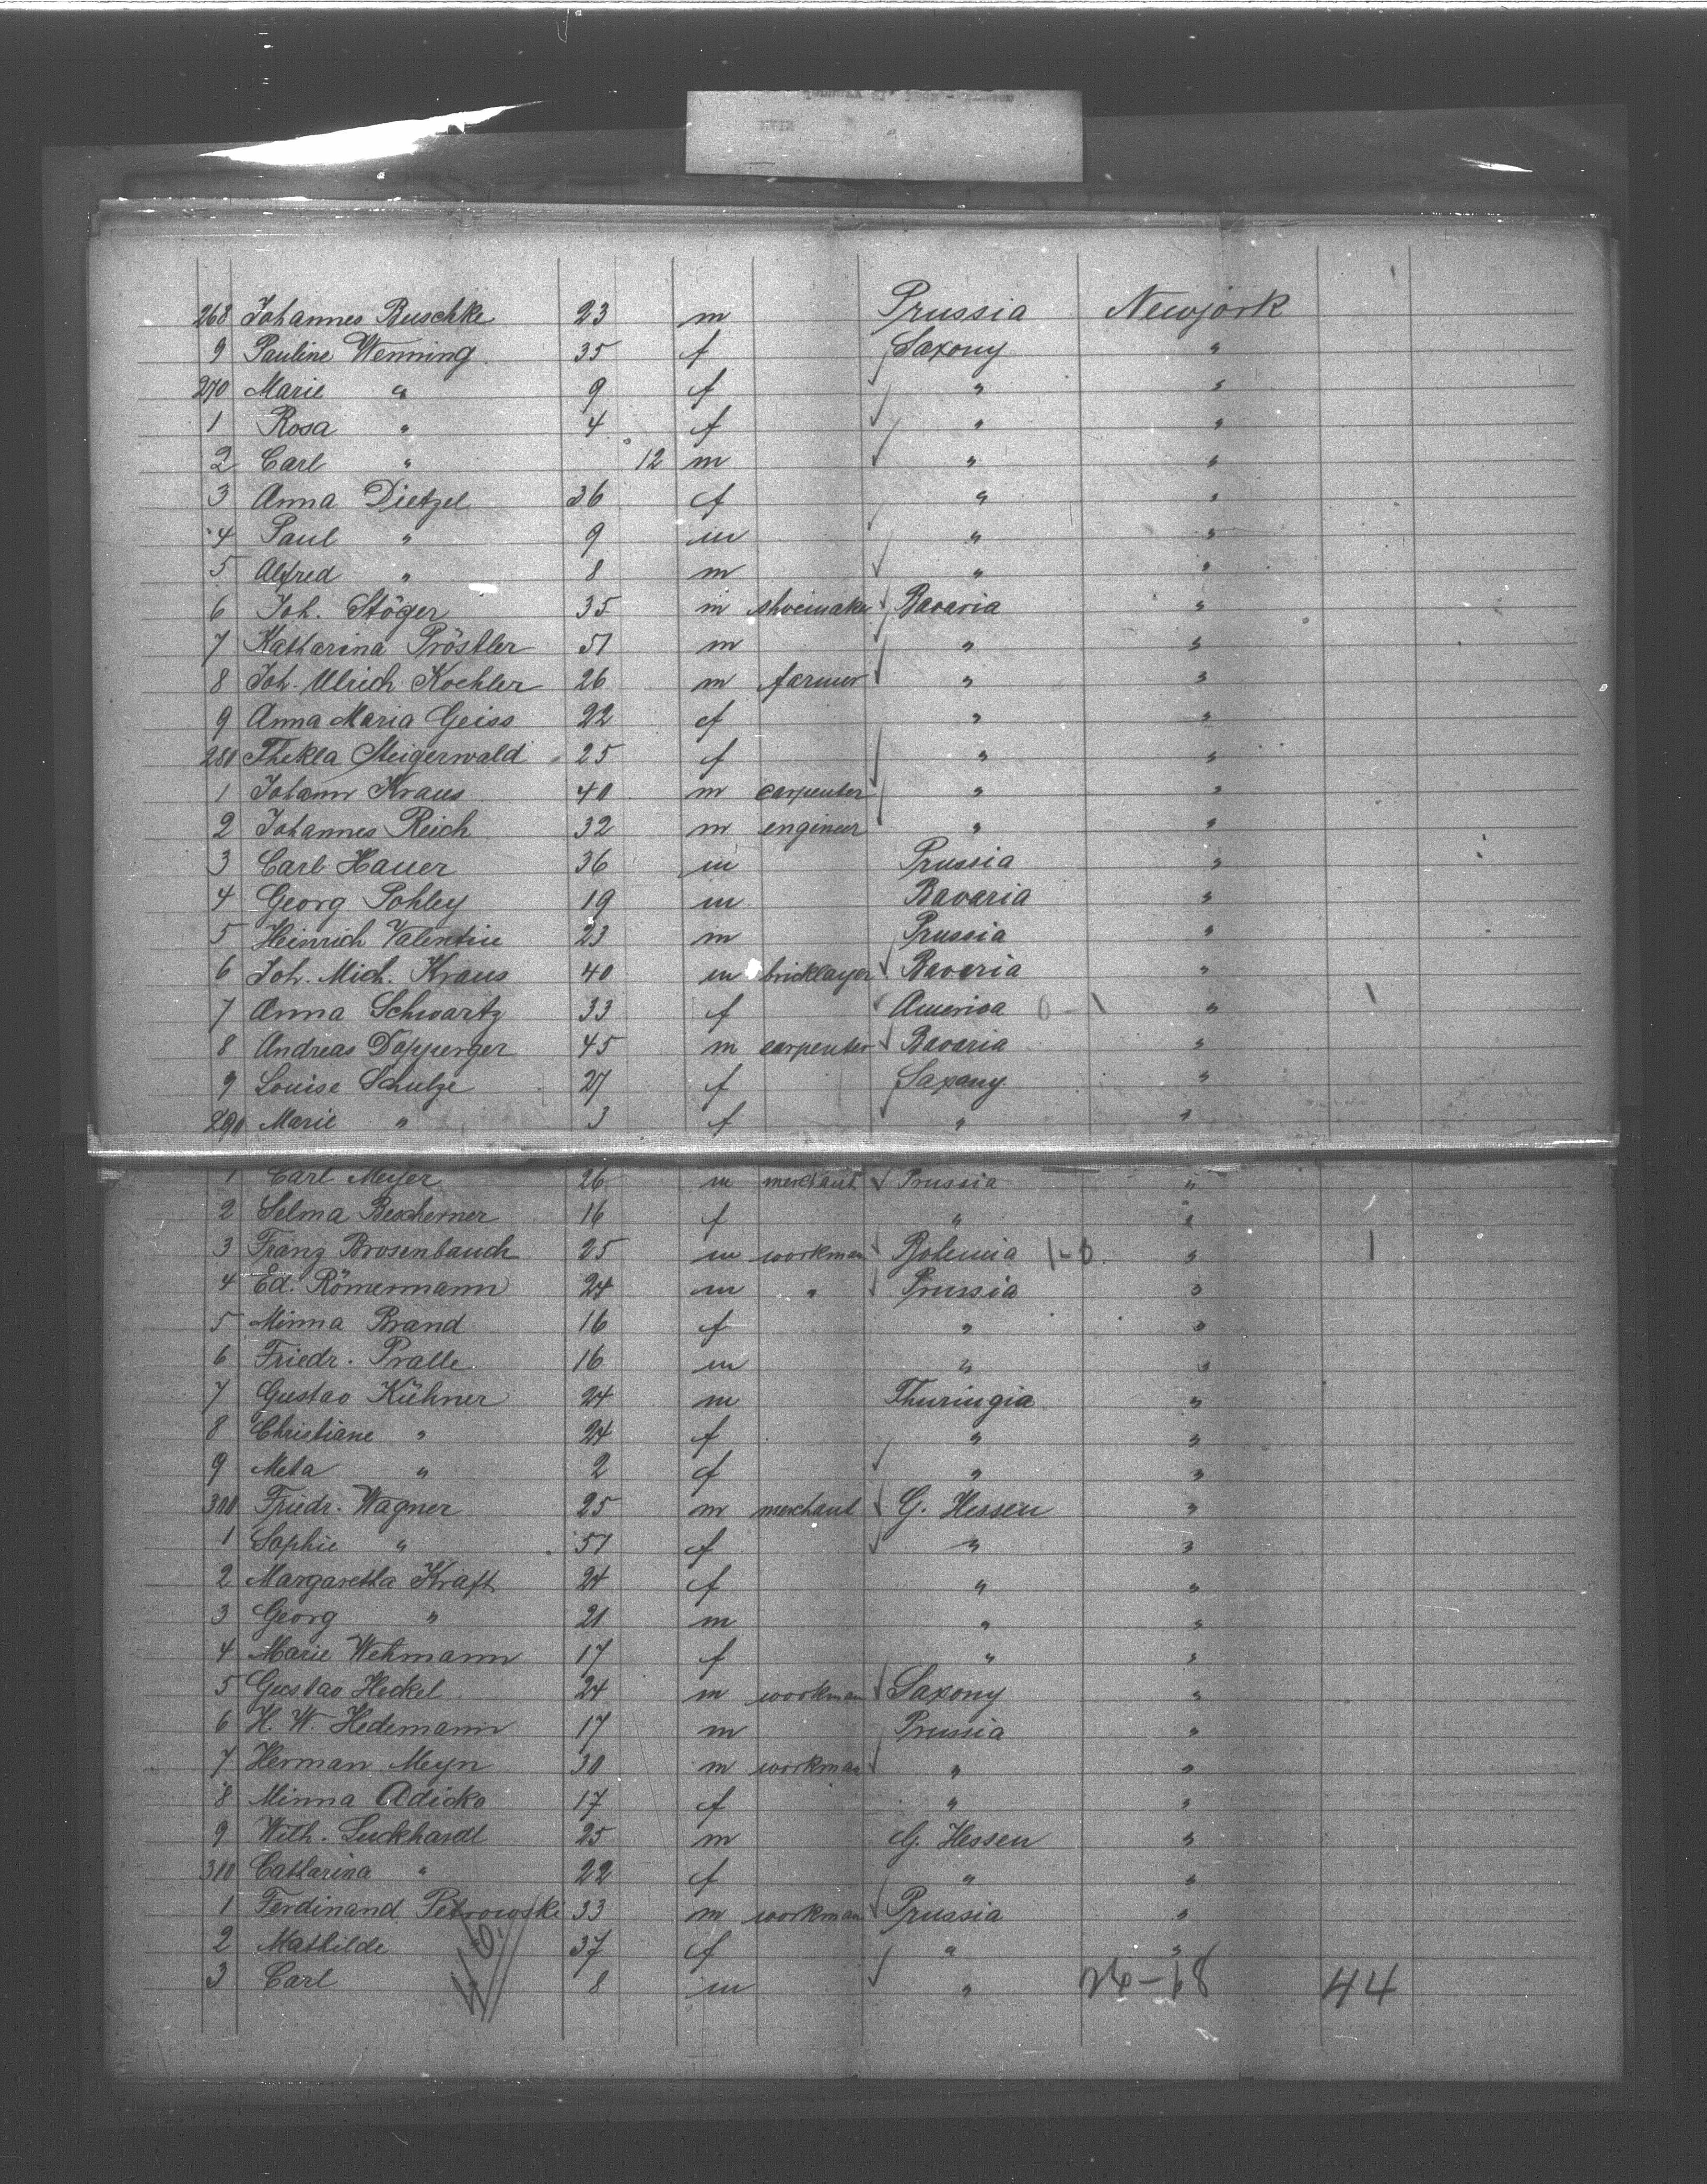 268 Johannes Buschke 23 m Prussia Newjork
9 Pauline Wenning 35 f Saxony "
270 Marie " 9 f " "
1 Rosa " 4 f " "
2 Carl " 12 m " "
3 Anna Dietzel 36 f " "
4 Paul " 9 m " "
5 Alfred " 8 m " "
6 Joh. Stöger 35 m shoemaker Bavaria "
7 Katharina Pröstler 51 m " "
8 Joh. Ulrich Koehler 26 m farmer " "
9 Anna Maria Geiss 22 f " "
280 Thekla Steigerwald 25 f " "
1 Johann Kraus 40 m carpenter " "
2 Johannes Reich 32 m engineer " "
3 Carl Hauer 36 m Prussia "
4 Georg Pohley 19 m Bavaria "
5 Heinrich Valentin 23 m Prussia "
6 Joh. Mich. Kraus 40 m bricklayer Bavaria "
7 Anna Schwartz 33 f America 0-1 " 1
8 Andreas Dopperger 45 m carpenter Bavaria "
9 Louise Schulze 27 f Saxony "
290 Marie " 3 f " "
1 Carl Meyer 26 m merchant Prussia "
2 Selma Bescherner 16 f " "
3 Franz Brosenbauch 25 m workman Bohemia 1-0 " 1
4 Ed. Römermann 24 m " Prussia "
5 Minna Brand 16 f " "
6 Friedr. Pralle 16 m " "
7 Gustav Kühner 24 m Thuringia "
8 Christiane " 24 f " "
9 Meta " 2 f " "
300 Friedr. Wagner 25 m merchant G. Hessen "
1 Sophie " 51 f " "
2 Margaretha Kraft 24 f " "
3 Georg " 21 m " "
4 Marie Wehmann 17 f " "
5 Gustav Heckel 24 m workman Saxony "
6 H. W. Hedemann 17 m Prussia "
7 Herman Meyn 30 m workman " "
8 Minna Adicko 17 f " "
9 Wilh. Luckhardt 25 m G. Hessen "
310 Catharina " 22 f " "
1 Ferdinand Petrowski 33 m workman Prussia "
2 Mathilde 37 f " "
3 Carl 8 m " 26-18 44